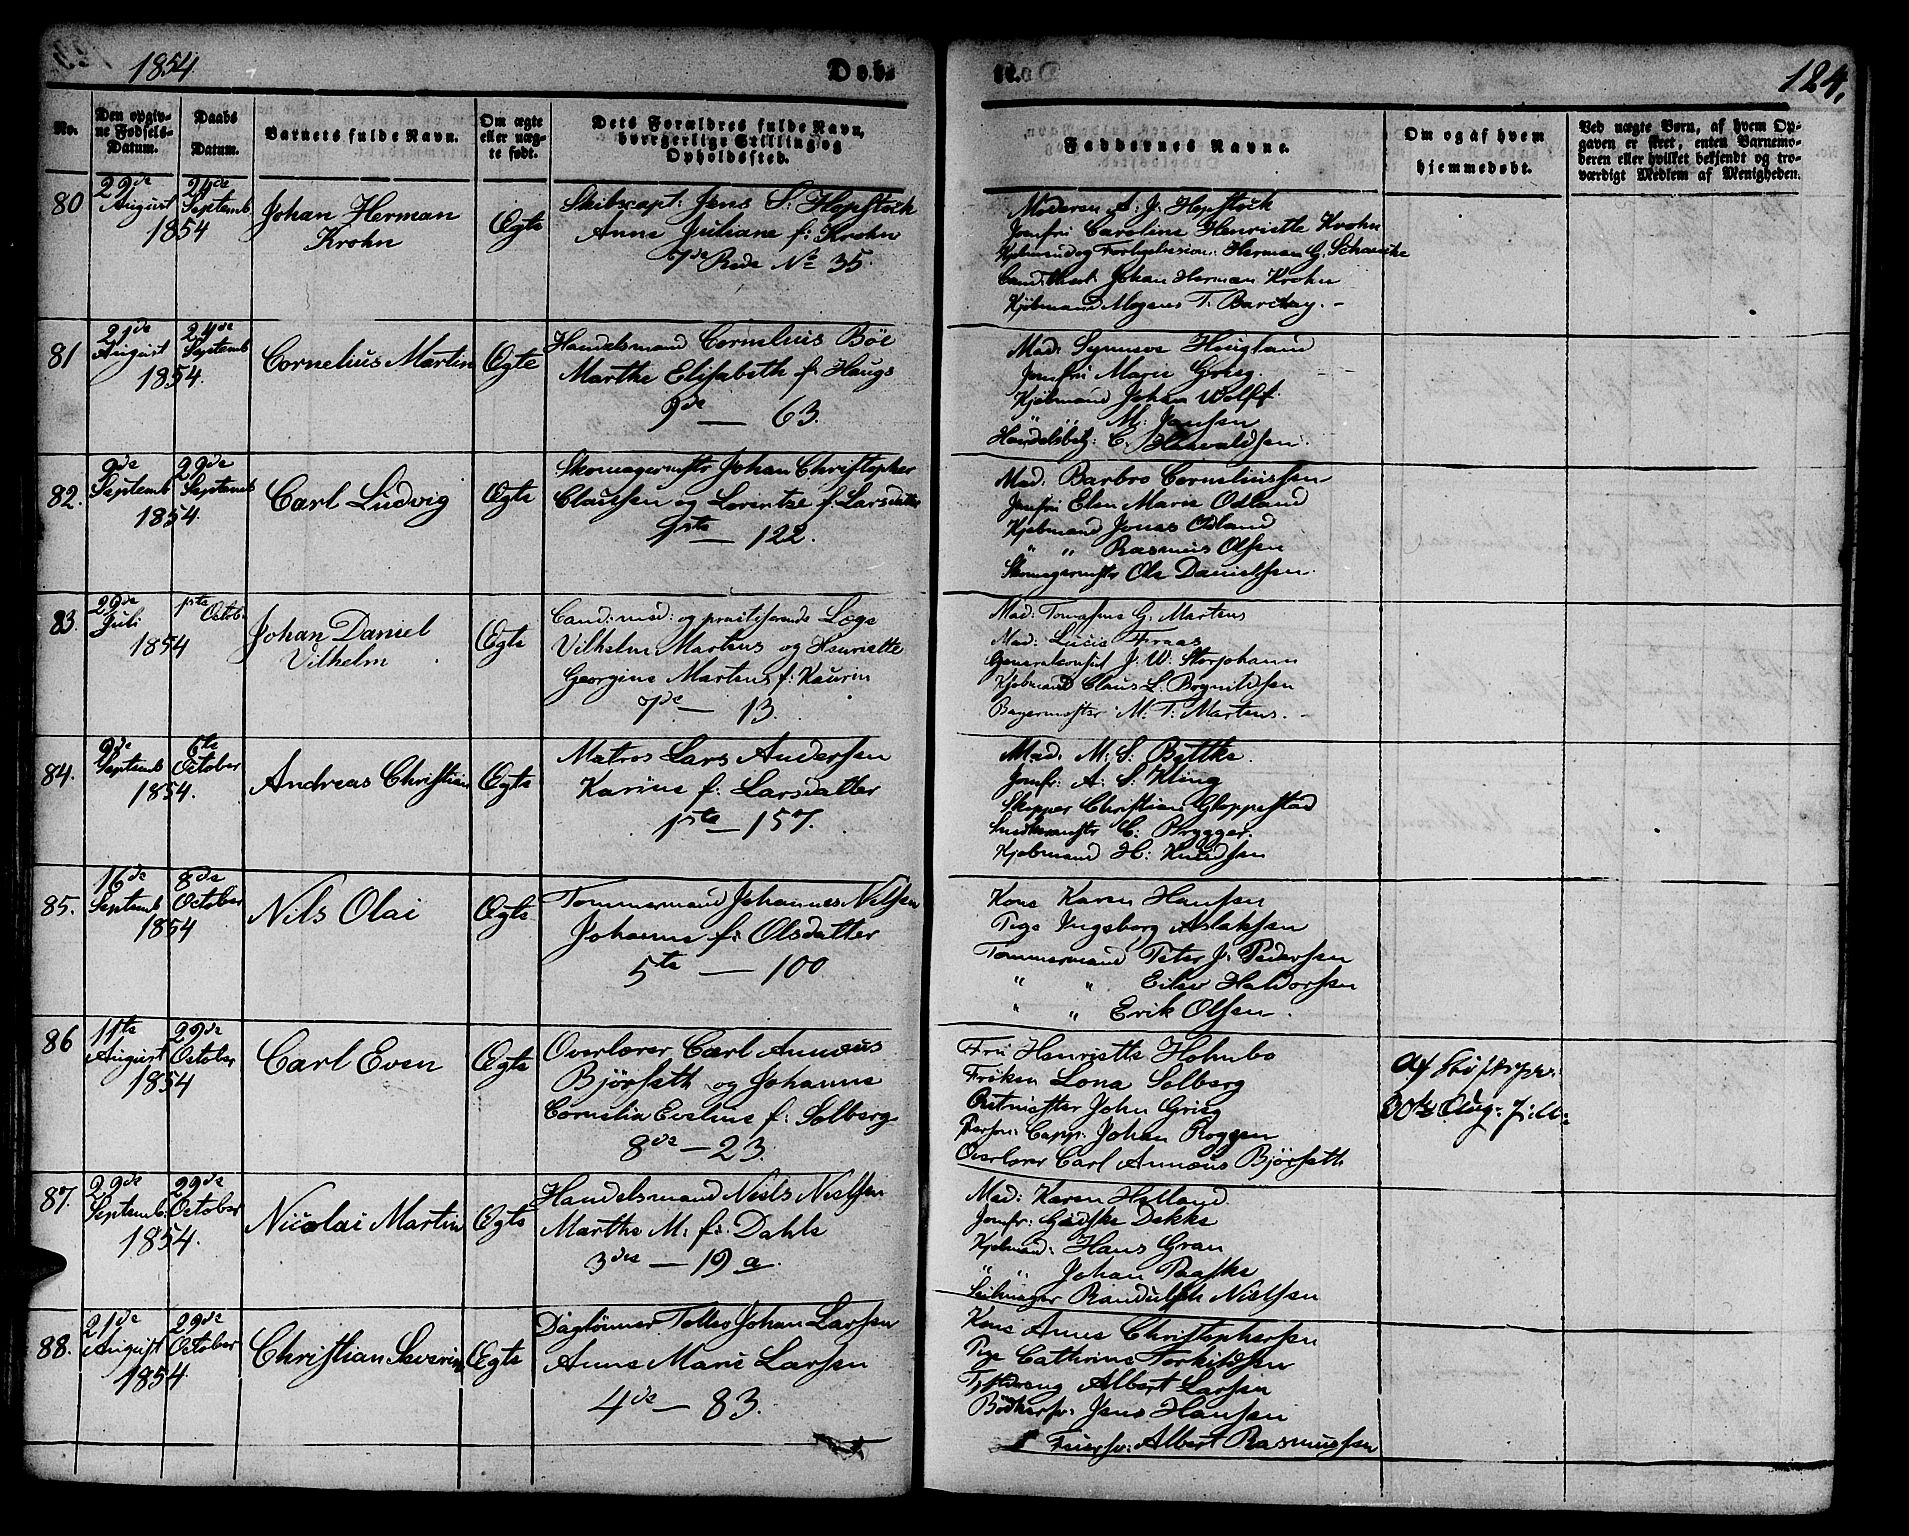 1854
Døb-
te.
124.
No.
Den opgiv-
ne Fødsels-
Datum.
Daabs
Datum.
Barnets fulde Navn.
Om ægte
eller uæg-
te født.
Dets Forældres fulde Navn,
borgerlige Stilling og
Opholdsted.
Faddernes Navne.
Om og af hvem
hjemmedøbt.
Ved uægte Børn, af hvem Op-
gaven er skeet, enten Barnemo-
deren eller hvilket bekjendt og tro-
værdigt Medlem af Menigheden.
80
29de
August
24de
Septemb
1854
Johan Herman
Krohn
Ægte
Skibscapt: Jens S: Hopstock
Anne Juliane f: Krohn
7de Rode No 35.
Moderen A. J. Hopstock
Jomfru Caroline Henriette Krohn
Herman G.
Johan Herman Krohn
Kjøbmand Mogens T. Barclay.
81
21de
August
24de
Septemb
1854.
Cornelius Martin
Ægte
Handelsmand Cornelius Bøe
Marthe Elisabeth f: Haugs
9de — 63.
Mad. Synnove Haugland
Jomfru Marie Grieg.
Kjøbmand Johan Wolff
" " M: Jansen
Handelsbetj: C.
82.
9de
Septemb
29de
Septemb
1854.
Carl Ludvig
Ægte
Skomagermstr Johan Christopher
Claussen og Lorentze f. Larsdatter
1ste — 122.
Mad. Barbro Corneliussen
Jomfru Elen Marie Odland
Kjøbmand Jonas Odland
" " Rasmus Olsen
Skomagermstr Ole Danielsen.
83.
29de
Juli
1ste
Octob.
1854
Johan Daniel
Vilhelm
Ægte
Cand: med: og practiserende Læge
Vilhelm Martens og Henriette
Georgine Martens f: Kaurin
7de — 13.
Mad: G. Martens
Mad: Lucie Fraas
Generalconsul J. W. Storjohann
Kjøbmand Claus L. Brynildsen
Bagermester M. T. Martens.
84.
9de
Septemb
6te
October
1854.
Andreas Christian
Ægte
Matros Lars Andersen
Karine f: Larsdatter
1ste — 157.
Mad. M: S. Bøttke.
Jomfr: A. S. Kling
Skipper Christian Gloppestad
Snedkermstr C. Brygger.
Kjøbmand H: Knudsen
85.
16de
Septemb
8de
October
1854
Nils Olai
Ægte
Tømmermand Johannes Nilsen
Johanne f: Olsdatter
5te — 100
Kone Karen Hansen
Pige Ingeborg Aslaksen
Tømmermand Peter J. Pedersen
" " Eilev Haldorsen
" " Erik Olsen.
86
11te
August
29de
October
1854
Carl Even
Ægte
Overlærer Carl Annæus
Bjørseth og Johanne
Cornelia Eveline f: Solberg
8de — 23.
Fru Henriette Holmbo
Frøken Lona Solberg
Ritmester John Grieg
Capp: Johan Roggen
Overlærer Carl Annæus Bjørseth
Af
30te Aug:
87.
29de
Septemb.
29de
October
1854.
Nicolai Martin
Ægte
Handelsmand Niels Nielsen
Marthe M: f: Dahle
3die — 19 a.
Mad: Karen Helland.
Jomfr: Gidske Dekke
Kjøbmand: Hans Gran
" " Johan Paaske
Seilmager Randulph Nielsen
88.
21de
August
29de
October
1854
Christian Severin
Ægte
Daglønner Tollev Johan Larsen
Anne Marie Larsen
4de — 83.
Kone Anne Christophersen
Pige Cathrine Torkildsen
Albert Larsen
Bødkersv: Jens Hansen
Albert Rasmussen